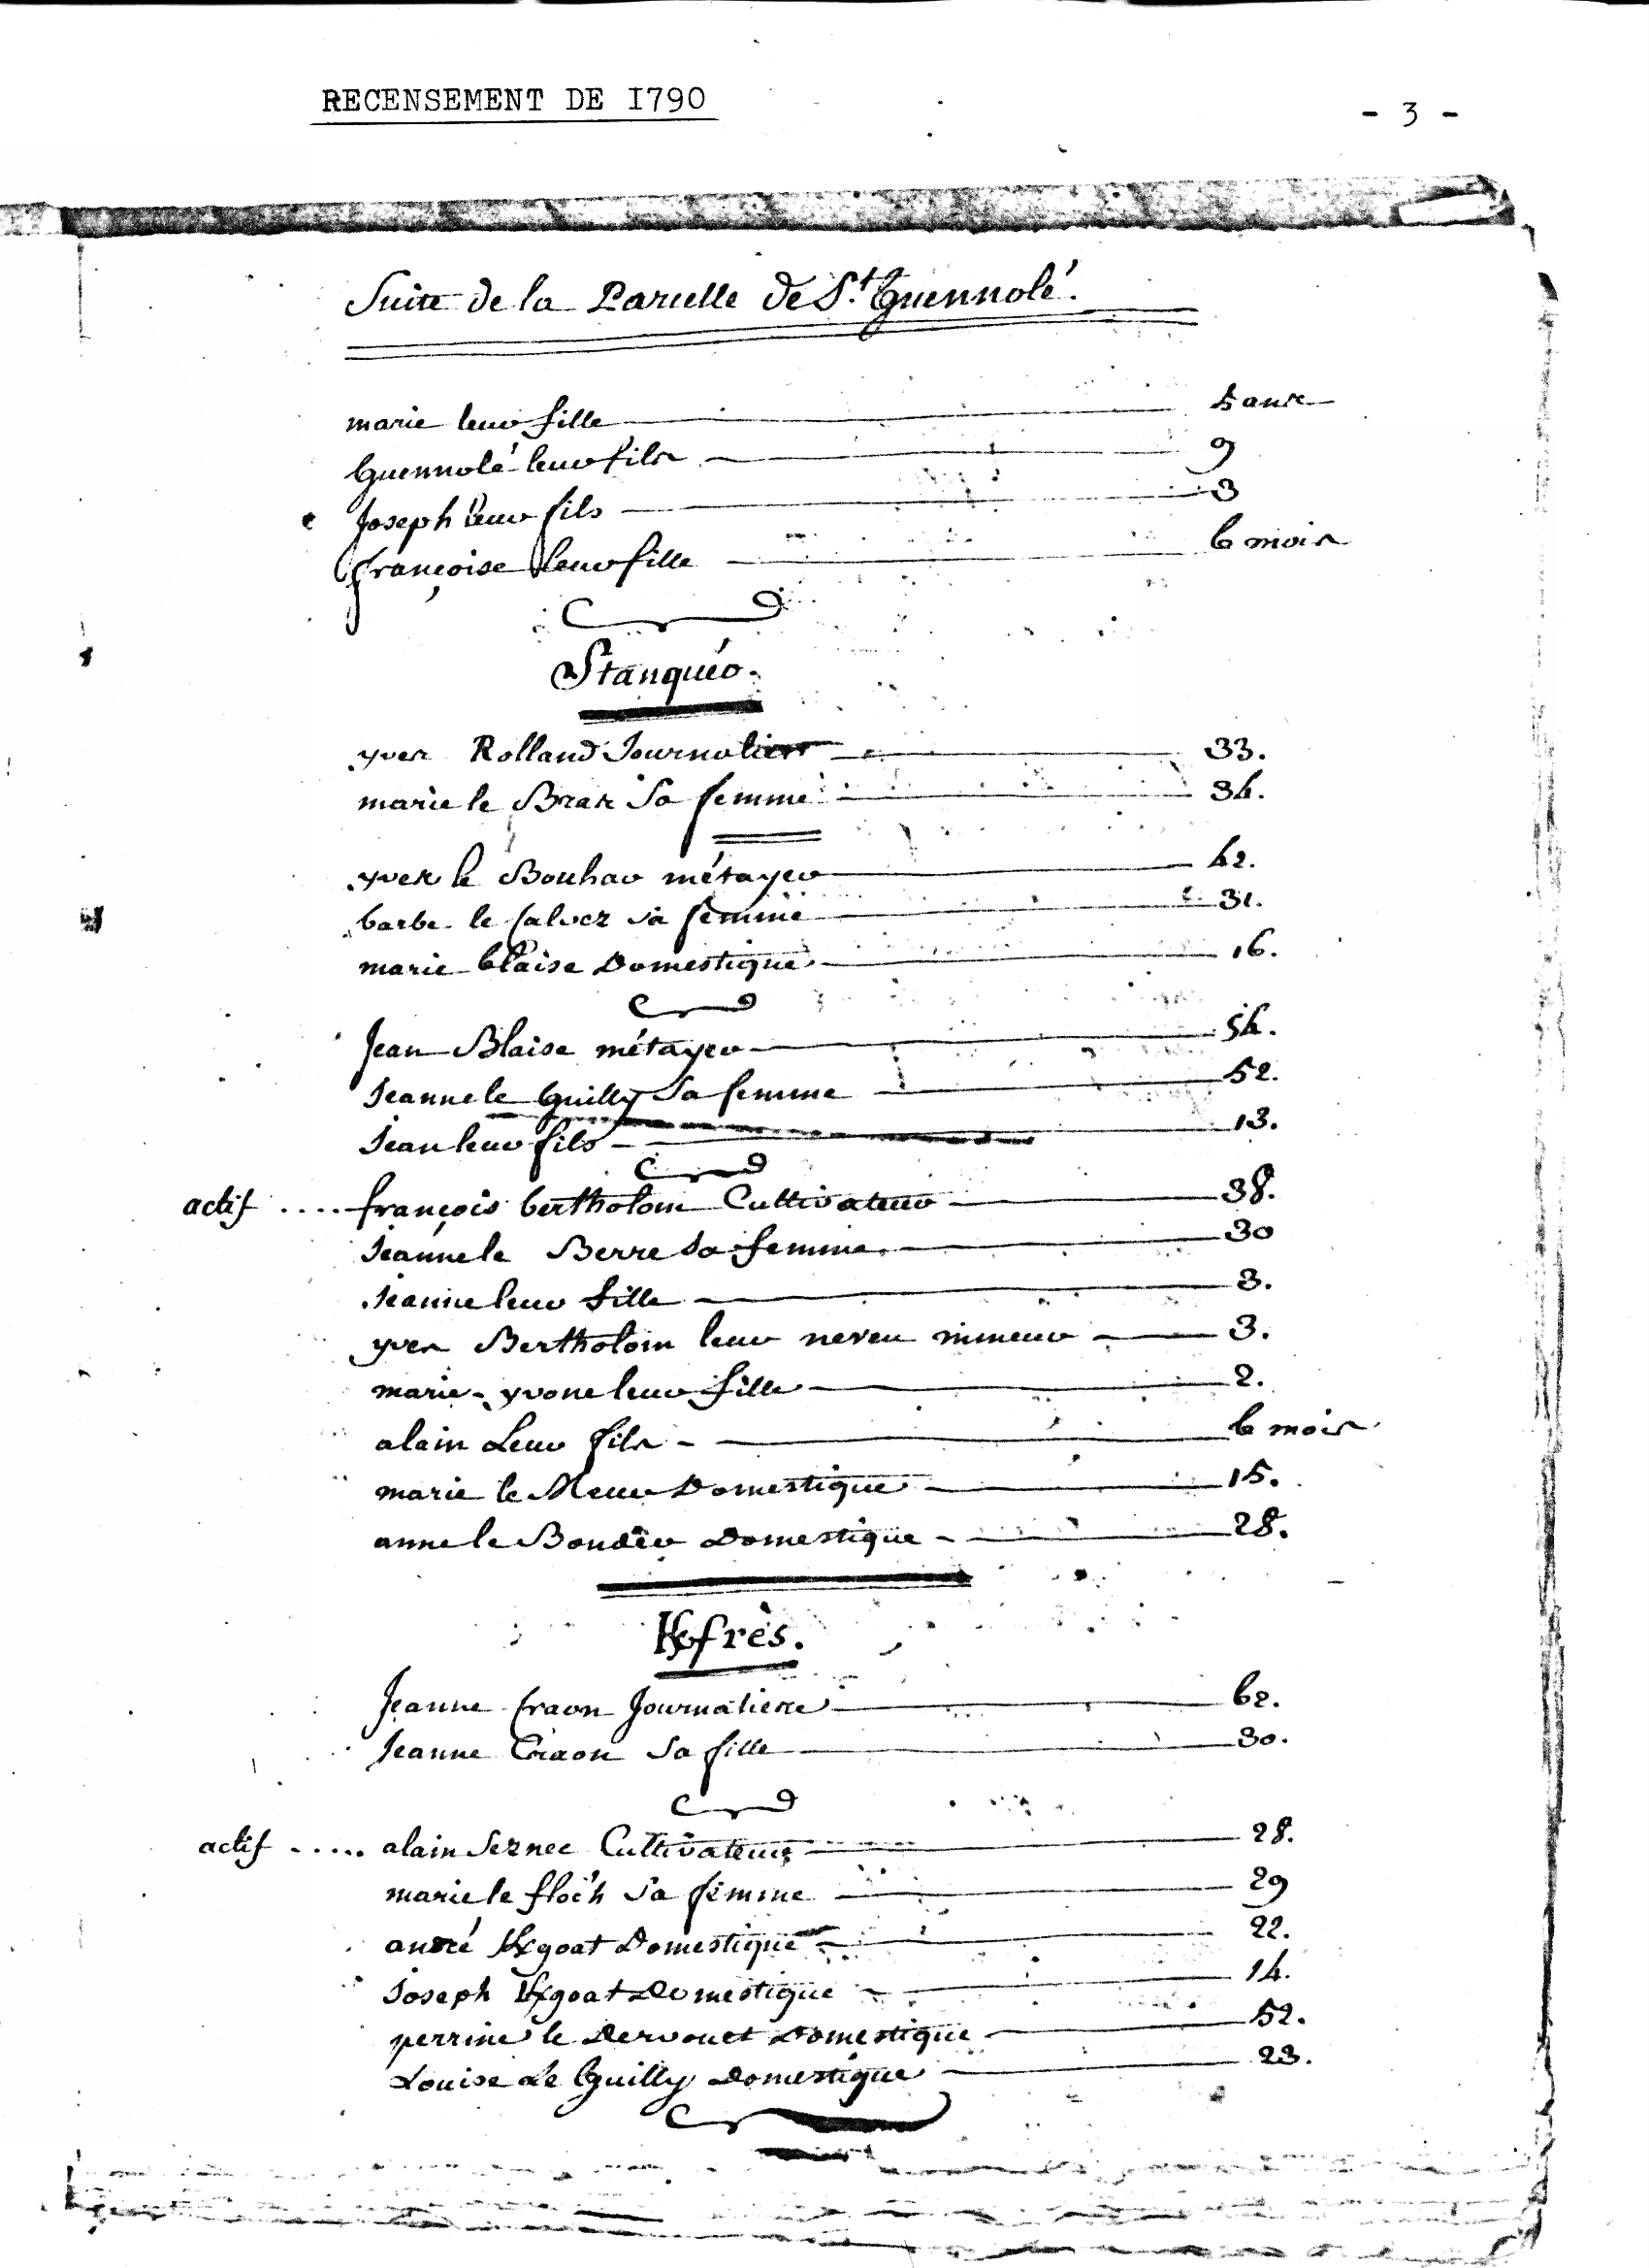 RECENSEMENT DE I790
- 3 -
Suite de la Parcelle de St. Guennolé.
marie leur fille 5 ans
Guennolé leur fils 9
Joseph leur fils 3
françoise leur fille 6 mois
Stanquéo.
yves Rolland Journalier 33.
marie le Bras Sa femme 34.
yves le Bouhar métayer 42.
barbe le Calvez sa femme 31.
marie blaise Domestique 16.
Jean Blaise métayer 54.
Jeanne le Guilly Sa femme 52.
Jean leur fils 13.
actif .... françois bertholom Cultivateur 38.
Jeanne le Berre sa femme 30
Jeanne leur fille 3.
yves Bertholom leur neveu mineur 3.
marie-yvone leur fille 2.
alain Leur fils 6 mois
marie le Meur Domestique 15.
anne le Boudêr Domestique 28.
K/frès.
Jeanne Craon Journaliere 62.
Jeanne Craon Sa fille 30.
actif ..... alain Seznec Cultivateur 28.
marie le floc'h Sa femme 29
andré K/goat Domestique 22.
Joseph K/goat Domestique 14.
perrine le Dervouet Domestique 52.
Louise Le Guilly Domestique 23.